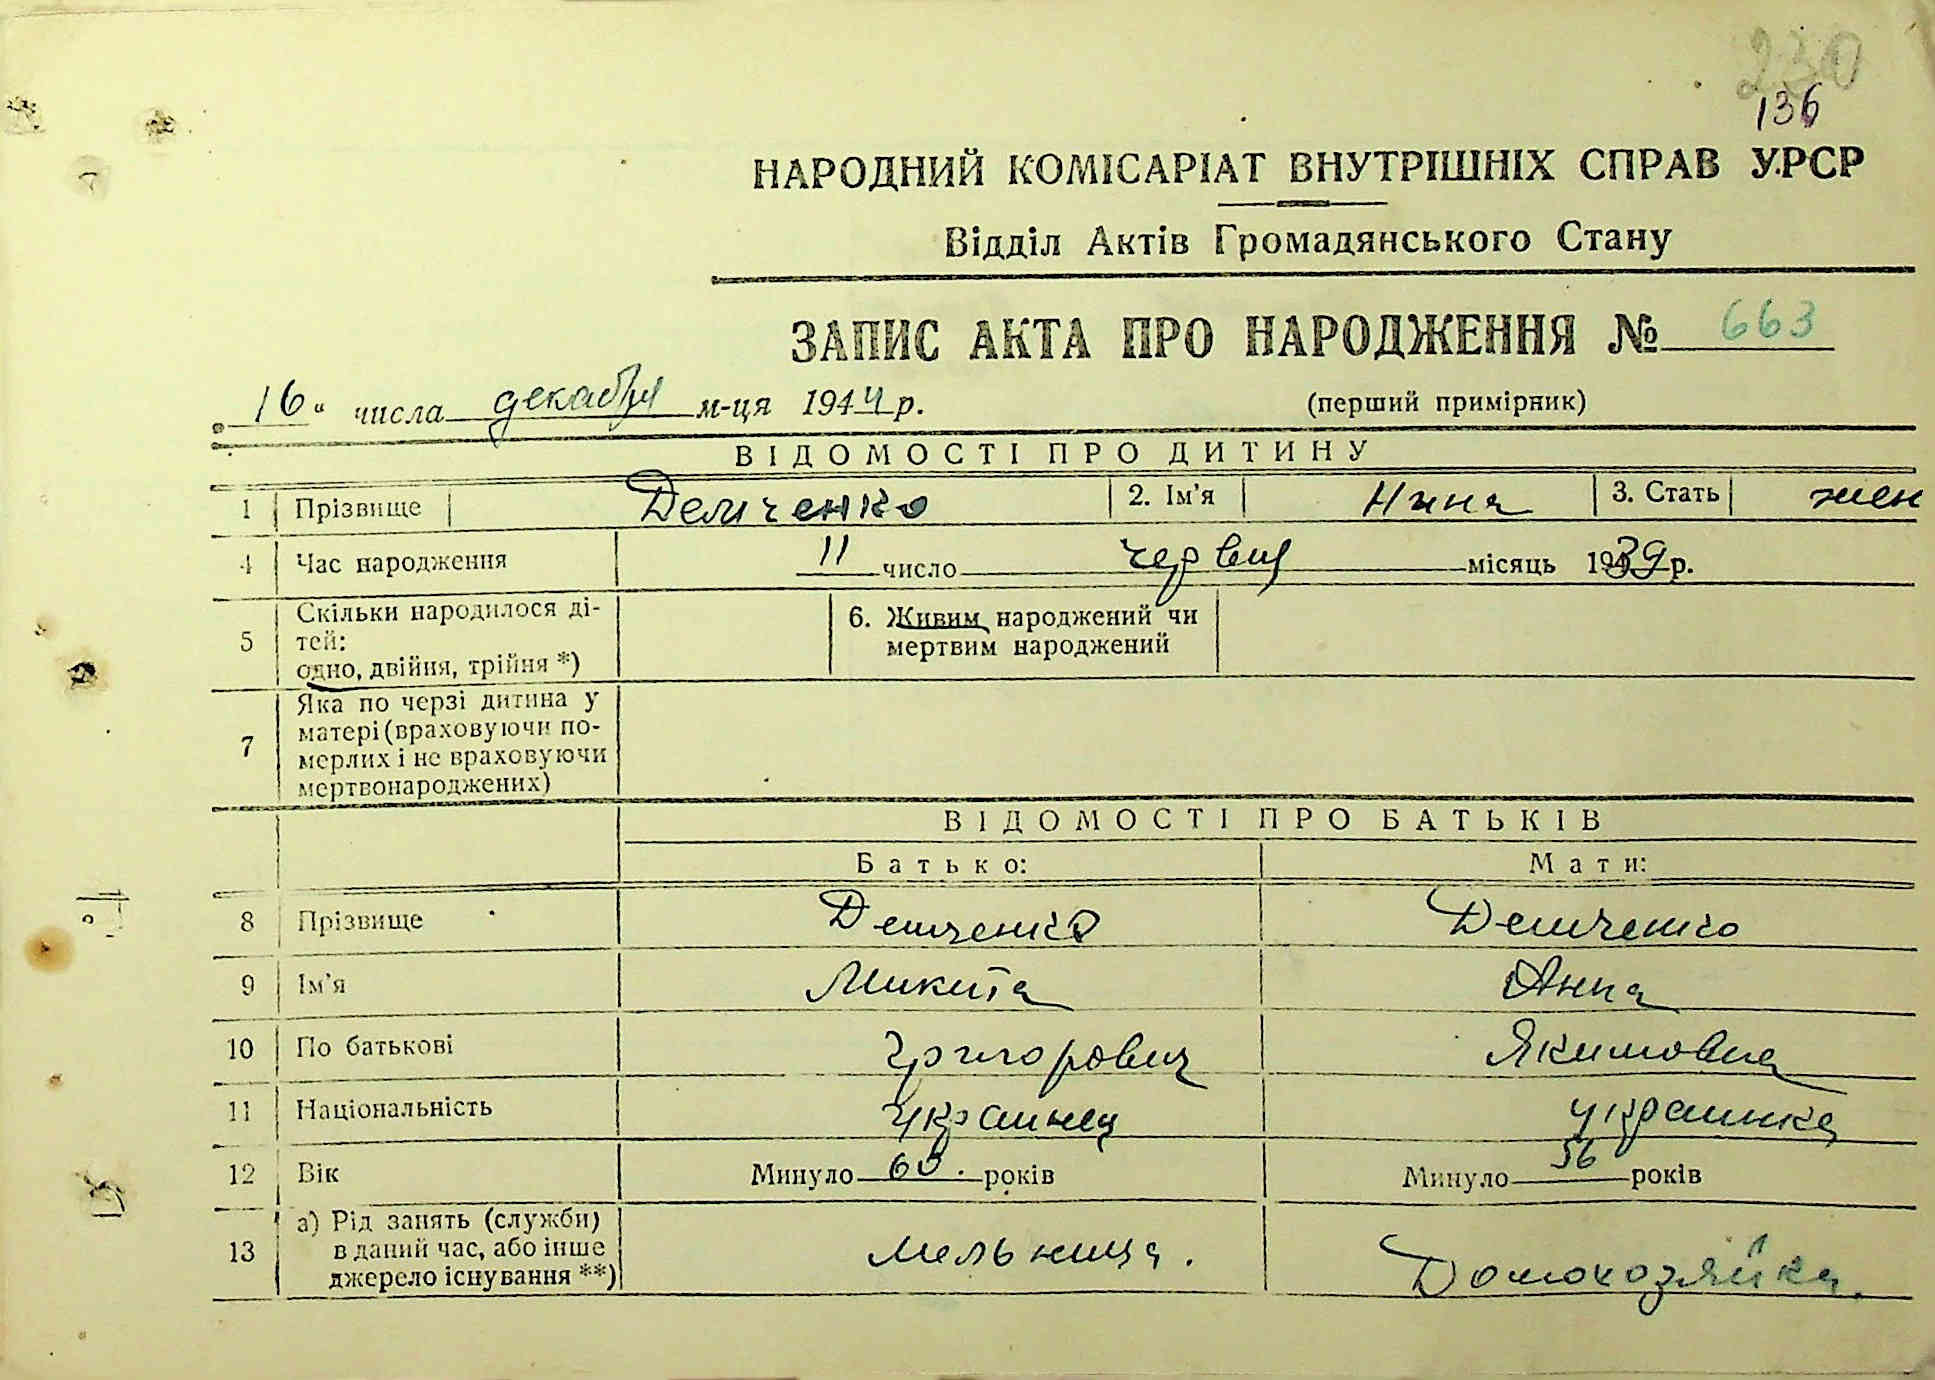 230
136
НАРОДНИЙ КОМІСАРІАТ ВНУТРІШНІХ СПРАВ УРСР
Відділ Актів Громадянського Стану
ЗАПИС АКТА ПРО НАРОДЖЕННЯ № 663
„16“ числа декабря м-ця 1944 р. (перший примірник)
ВІДОМОСТІ ПРО ДИТИНУ
1 Прізвище Демченко 2. Ім'я Нина 3. Стать жен
4 Час народження 11 число червня місяць 1939 р.
5 Скільки народилося ді-
тей:
одно, двійня, трійня *)
6. Живим народжений чи
мертвим народжений
7 Яка по черзі дитина у
матері (враховуючи по-
мерлих і не враховуючи
мертвонароджених)
ВІДОМОСТІ ПРО БАТЬКІВ
Батько: Мати:
8 Прізвище Демченко Демченко
9 Ім'я Микита Анна
10 По батькові Григорович Якимовна
11 Національність украинец украинка
12 Вік Минуло 60 років Минуло 56 років
13 а) Рід занять (служби)
в даний час, або інше
джерело існування **)
мельница. Домохозяйка.